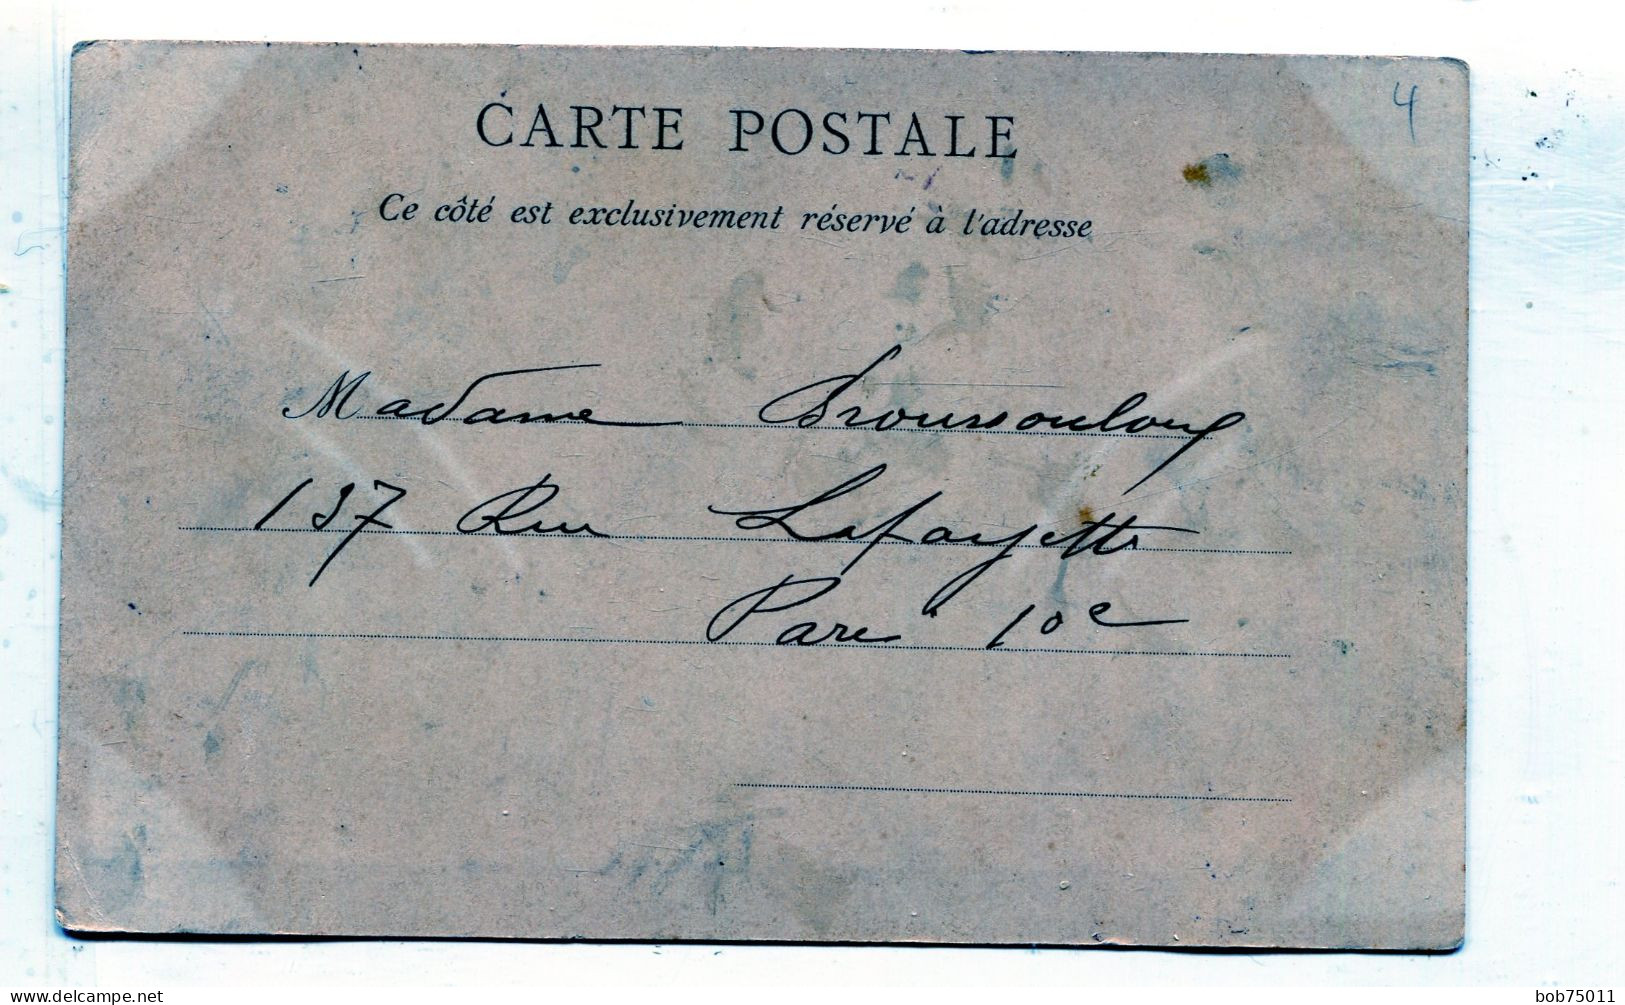 CARTE POSTALE
4
Ce côté est exclusivement réservé à l'adresse
Madame Broussouloux
137 Rue Lafayette
Paris 10e
delcampe.net
bob75011